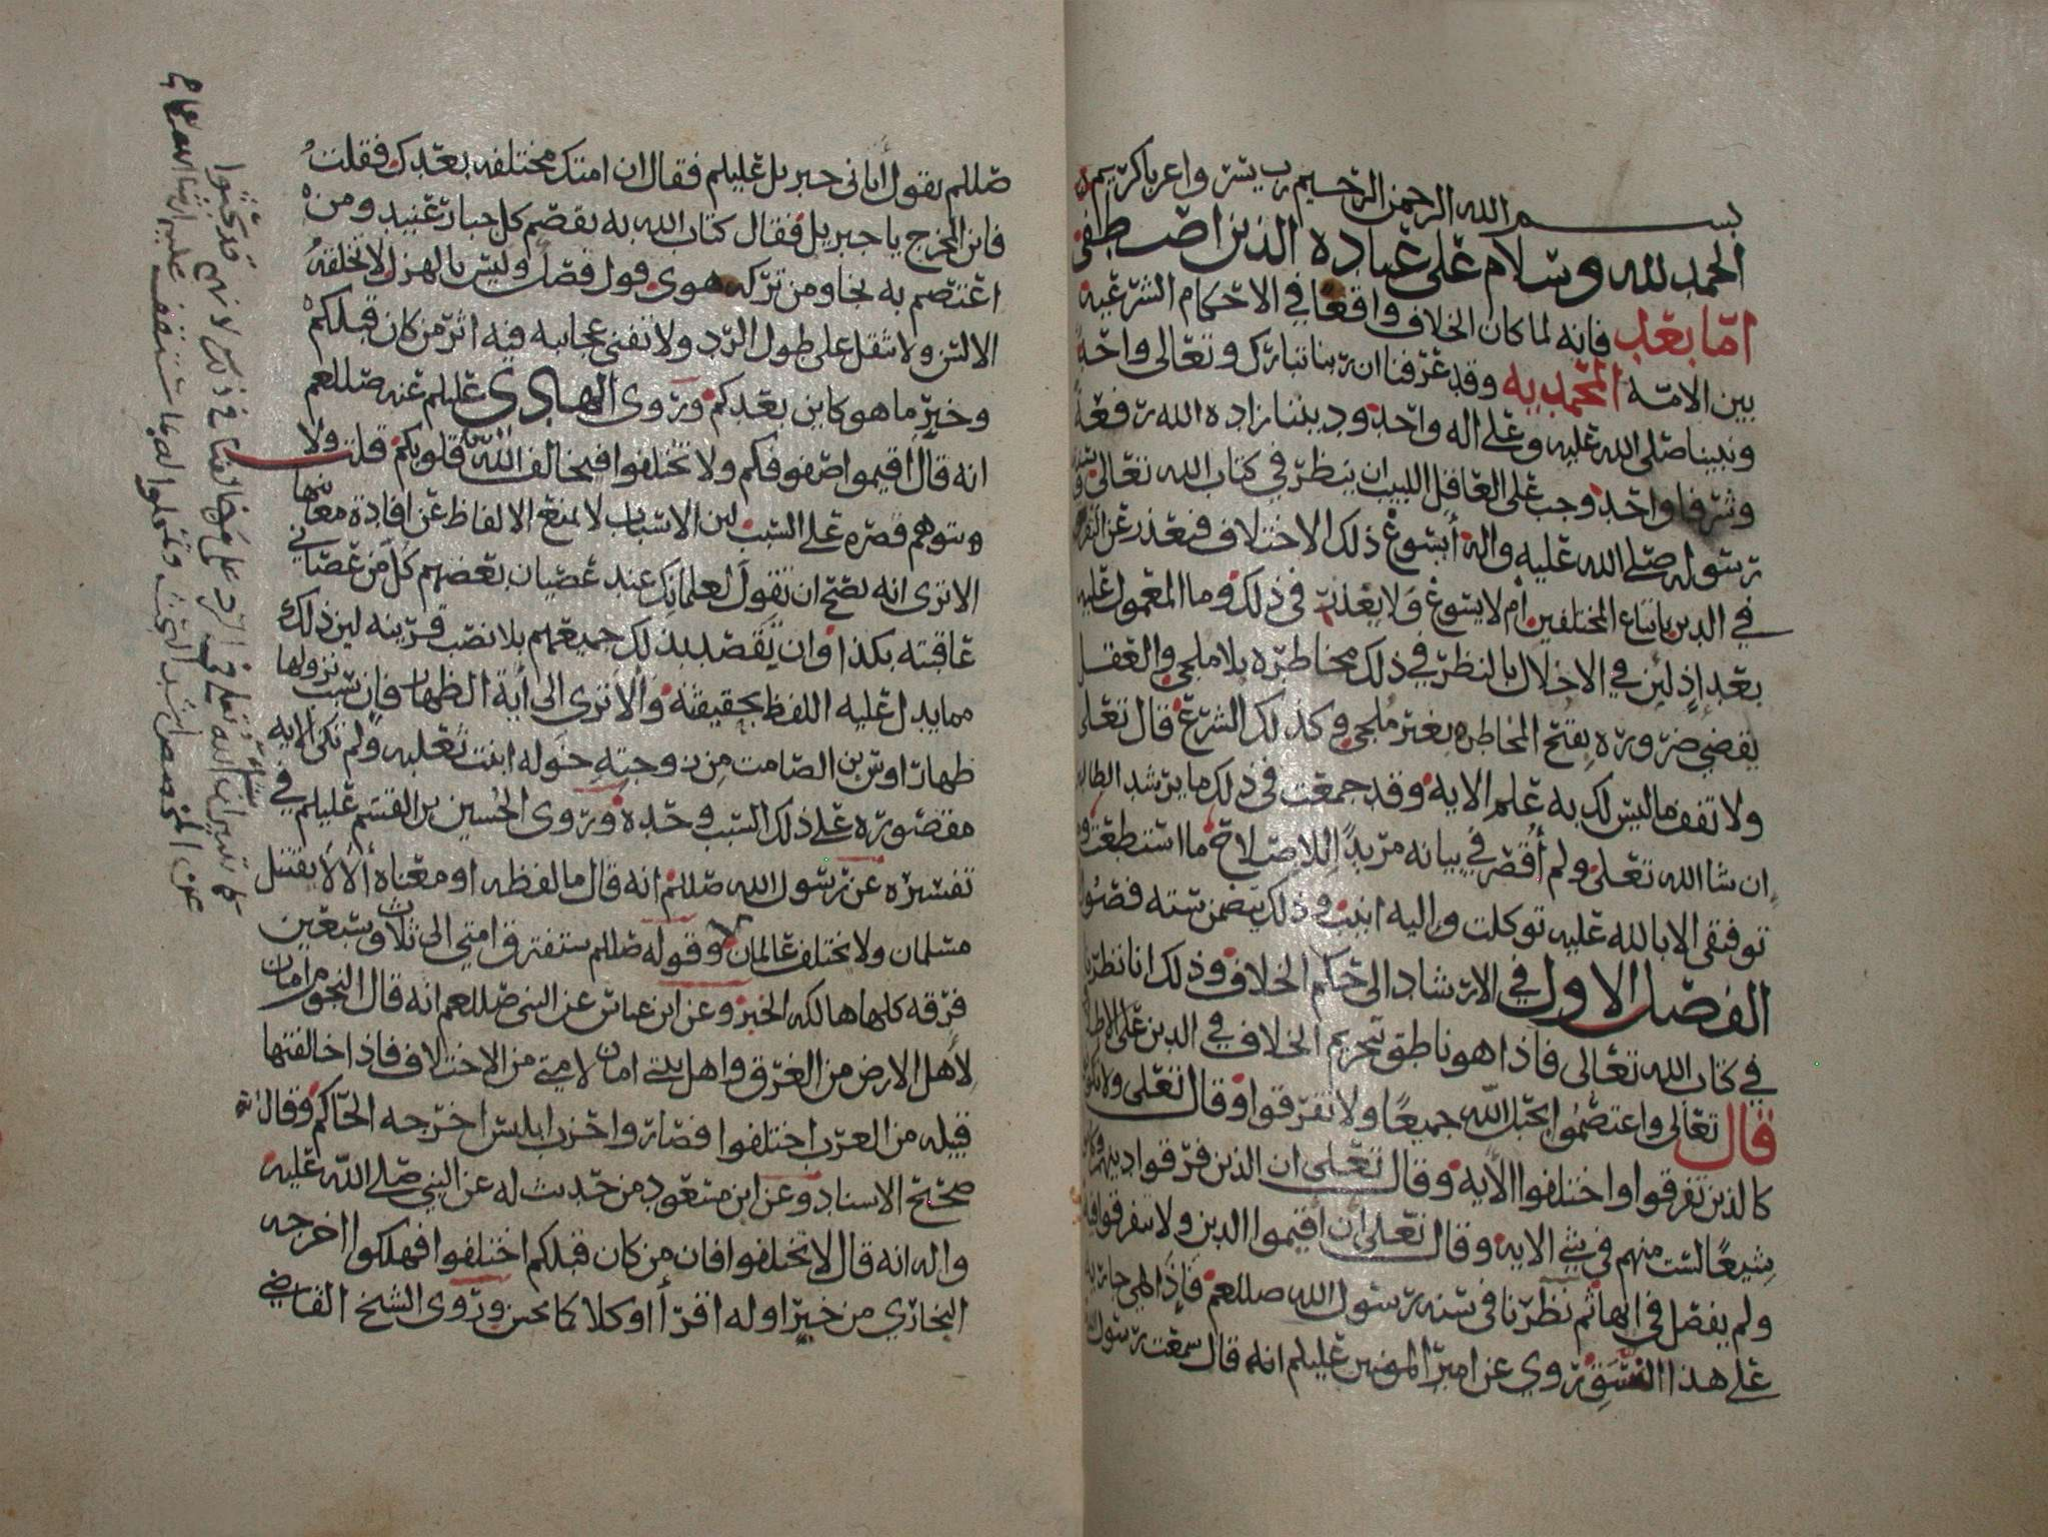 بسم الله الرحمن الرحيم رب يسر واعن يا كريم
الحمد لله وسلام على عباده الذين اصطفى
امّا بعد فانه لما كان الخلاف واقعًا في الاحكام الشرعيه
بين الامّه المحمّديه وقد عرّفنا ان ربنا تبارك وتعالى واحد
ونبينا صلى الله عليه وعلى اله واحد وديننا زاده الله رفعة
وشرفا واحد وجب على العاقل اللبيب ان ينظر في كتاب الله تعالى
رسوله صلى الله عليه واله أيسوغ ذلك الاختلاف فيعذر عن
في الدين باتباع المختلفين أم لا يسوغ وَلا يعذر في ذلك وما المعمول عليه
بعد اذٍ لئن في الاخلال بالنظر في ذلك مخاطره بلا ملجي والعقل
يقضي ضروره بقبح المخاطره بغير مُلجي وكذلك الشرع قال تعالى
ولا تقف ما ليس لك به علم الايه وقد جمعت في ذلك ما يرشد الطالب
ان شا الله تعلى ولم أُقصّر في بيانه مريدًا للاصلاح ما استطعت وما
توفيقي الا بالله عليه توكلت واليه انيب وذلك يتضمن سته فصول
الفصل الاول في الارشاد الى حكم الخلاف وذلك انا نظرنا
في كتاب الله تعالى فاذا هو ناطق بتحريم الخلاف في الدين على الاطلاق
قال تعالى واعتصمُوا بحبل الله جميعًا ولا تفرّقوا وقال تعلى ولا تكونوا
كالذين تفرقوا واختلفوا الأيه وقال تعلى ان الذين فرّقوا دينهم وكانوا
شيعًا لست منهم في شي الايه وقال تعلى ان اقيموا الدين ولا تتفرقوا فيه
ولم يفصل في ايها ثم نظرنا في سنه رسول الله صللعم فإذا هي جاريه
على هذا النسَق روي عن امير المومنين عليلم انه قال سمعت رسول الله
صللم يقول أتاني جبريل عليلم فقال ان امتك مختلفه بعدك فقلت
فاين المخرج يا جبريل فقال كتاب الله به يقصم كل جبار عنيد ومن
اعتصم به نجا ومن تركه هوى قول فصل وليس بالهزل لا تخلقه
الالسن ولا تثقل على طول الرّد ولا تفنى عجايبه فيه اثر من كان قبلكم
وخبر ما هو كاين بعدكم وروى الهادي عليلم عنه صللعم
انه قال اقيموا صفوفكم ولا تختلفوا فيخالف الله بين قلوبكم قلت ولا
يتوهم قصره على السبب لين الاسباب لا تمنع الالفاظ عن افادة معانيها
الا ترى انه يصح ان تقول لعلمانك عند عصيان بعضهم كل من عصاني
عاقبته بكذا وان تقصد بذلك جميعهم بلا نصب قرينه لين ذلك
مما يدل عليه اللفظ بحقيقته وألا ترى الى أية الظهار فإن سبب نزولها
ظهار اوس بن الصّامت من زوجته خوله ابنت ثعلبه ولم تكن الايه
مقصوره على ذلك السّبب وحده وروى الحُسين بن القسم عليلم في
تفسيره عن رسول الله صللم انه قال ما لفظه او معناه ألا لا يقتتل
مسلمان ولا يختلف عالمان وقوله صللم ستفترق امتي الى ثلاث وسبعين
فرقه كلها هالكه الخبر وعن ابن عباس عن النبي صللعم انه قال النجوم امان
لأهل الارض من الغرق واهل بيتي امان لامتي من الاختلاف فاذا خالفتها
قبيله من العرب اختلفوا فصاروا حزب ابليس اخرجه الحاكم وقال
صحيح الاسناد وعن ابن مسعود من حديث له عن النبي صلى الله عليه
واله انه قال لا تختلفوا فان من كان قبلكم اختلفوا فهلكوا اخرجه
البخاري من خبر اوله اقرأا وكلاكما محسن وروى الشيخ القاضي